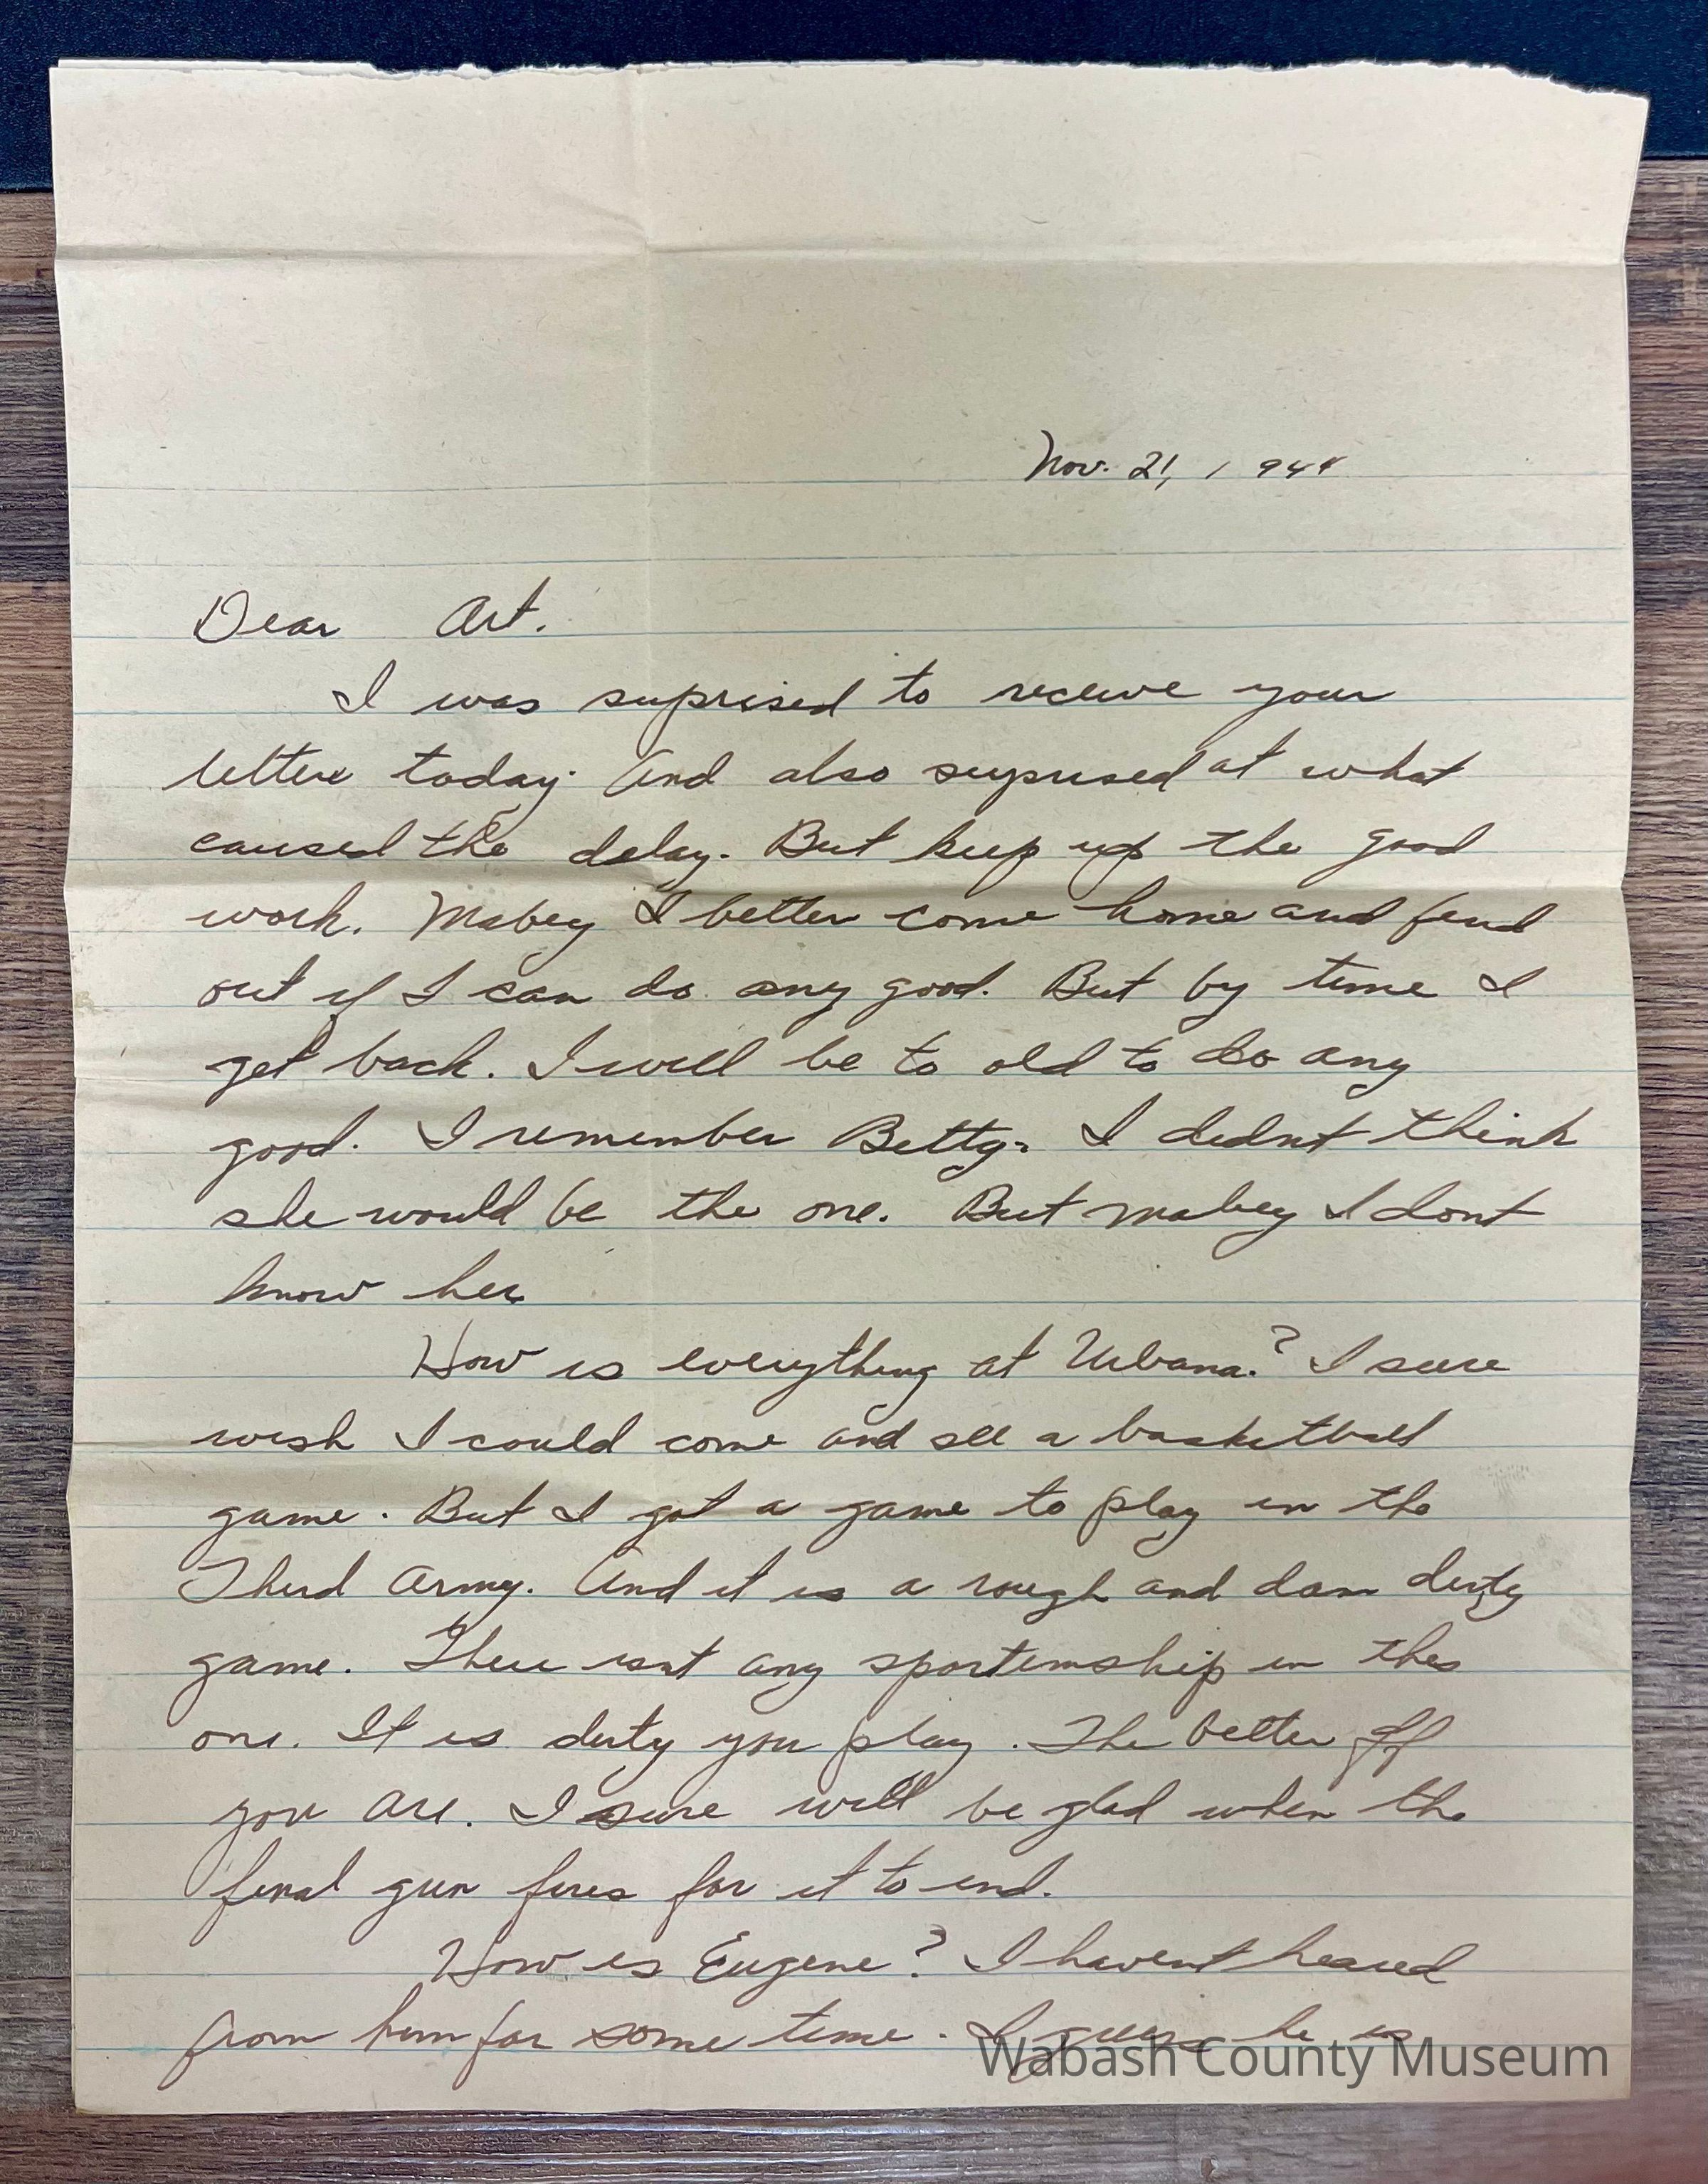 Nov. 21, 1944
Dear Art.
I was suprised to receive your
letter today. And also suprised at what
caused the delay. But keep up the good
work. Mabey I better come home and find
out if I can do any good. But by time I
get back. I will be to old to do any
good. I remember Betty. I didnt think
she would be the one. But mabey I dont
know her
How is everything at Urbana? I sure
wish I could come and see a basketball
game. But I got a game to play in the
Third Army. And it is a rough and dam dirty
game. There isnt any sportemship in this
one. It is dirty you play. The better off
you are. I sure will be glad when the
final gun fires for it to end.
How is Eugene? I havent heared
from him for some time. I guess he is
Wabash County Museum